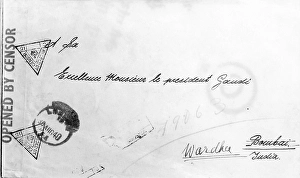 OPENED BY CENSOR
A Sa
Exellence Monsieur le president Gandi
1906
Wardha Bombai.
India.